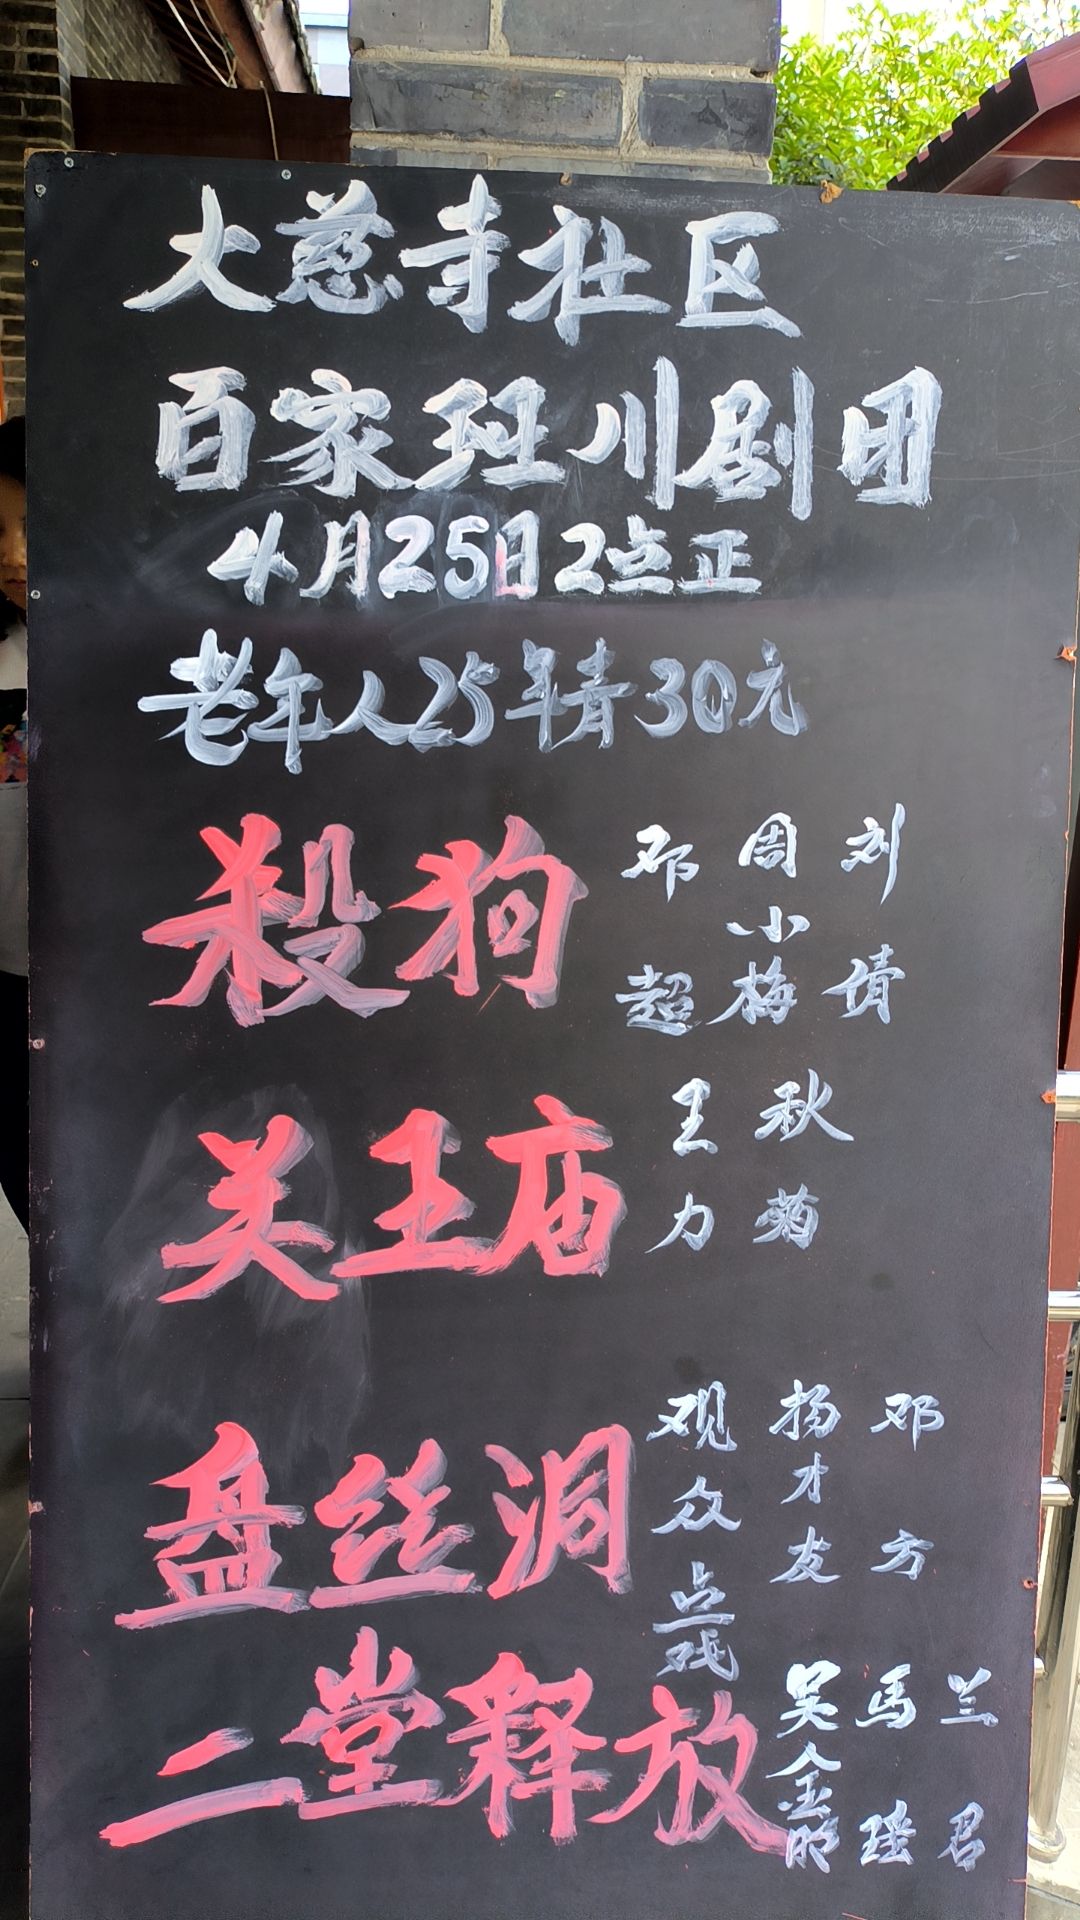 大慈寺社区
百家班川剧团
4月25日2点正
老年人25年青30元
殺狗
邓超 周小梅 刘倩
关王庙
王力 秋菊
盘丝洞
观众点戏 扬才友 邓方
二堂释放
吴金明 馬瑶 兰君